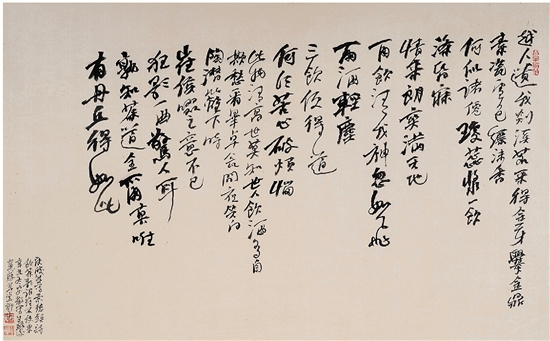 越人遺我剡溪茗采得金芽爨金鼎
素瓷雪色縹沫香
何似諸僊瓊蕊漿一飲
滌昏寐
情來朗爽滿天地
再飲清我神忽如飛
雨洒輕塵
三飲便得道
何須苦心破煩惱
此物清高世莫知世人飲酒多自
欺愁看畢卓瓮間夜笑向
陶潛籬下時
崔侯啜之意不已
狂歌一曲驚人耳
孰知茶道全爾真唯
有丹丘得如此